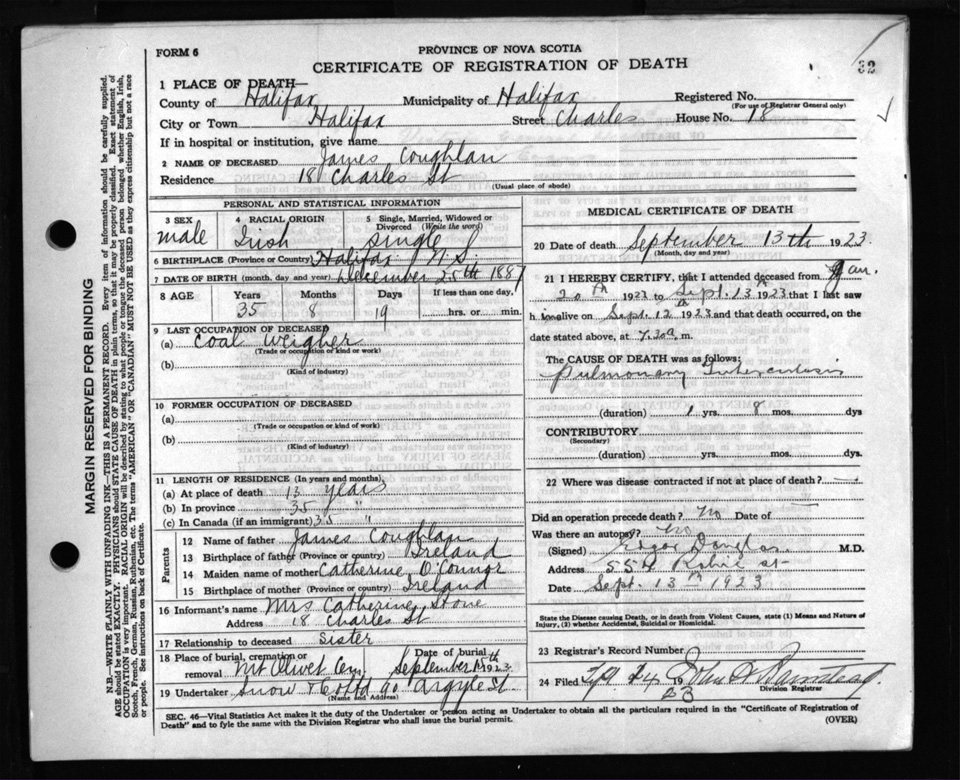 32
FORM 6
PROVINCE OF NOVA SCOTIA
CERTIFICATE OF REGISTRATION OF DEATH
1 PLACE OF DEATH—
County of Halifax Municipality of Halifax Registered No.
(For use of Registrar General only)
City or Town Halifax Street Charles House No. 18
If in hospital or institution, give name
2 NAME OF DECEASED James Coughlan
Residence 18 Charles St
(Usual place of abode)
PERSONAL AND STATISTICAL INFORMATION
3 SEX 4 RACIAL ORIGIN 5 Single, Married, Widowed or Divorced (Write the word)
male Irish Single
6 BIRTHPLACE (Province or Country) Halifax N.S.
7 DATE OF BIRTH (month, day and year) December 25th 1887
8 AGE Years Months Days If less than one day,
35 8 19 hrs. or min.
9 LAST OCCUPATION OF DECEASED
(a) Coal Weigher
(Trade or occupation or kind or work)
(b)
(Kind of industry)
10 FORMER OCCUPATION OF DECEASED
(a)
(Trade or occupation or kind of work)
(b)
(Kind of industry)
11 LENGTH OF RESIDENCE (In years and months)
(a) At place of death 13 years
(b) In province 35 "
(c) In Canada (if an immigrant) 35 "
Parents
12 Name of father James Coughlan
13 Birthplace of father (Province or country) Ireland
14 Maiden name of mother Catherine O'Connor
15 Birthplace of mother (Province or country) Ireland
16 Informant's name Mrs Catherine Stone
Address 18 Charles St
17 Relationship to deceased Sister
18 Place of burial, cremation or removal Mt Olivet Cem. Date of burial September 15th 1923
19 Undertaker Snow & Co Ltd 90 Argyle St.
(Name and Address)
MEDICAL CERTIFICATE OF DEATH
20 Date of death September 13th 1923.
(Month, day and year)
21 I HEREBY CERTIFY, that I attended deceased from Jan.
20th 1923 to Sept. 13th 1923 that I last saw
h im alive on Sept. 12th 1923 and that death occurred, on the
date stated above, at 7.20 a, m.
The CAUSE OF DEATH was as follows:
Pulmonary Tuberculosis
(duration) 1 yrs. 8 mos. dys
CONTRIBUTORY
(Secondary)
(duration) yrs. mos. dys.
22 Where was disease contracted if not at place of death?
Did an operation precede death? No Date of
Was there an autopsy? No
(Signed) Edgar Douglas M.D.
Address St
Date Sept. 13th 1923
State the Disease Causing Death, or in death from Violent Causes, state (1) Means and Nature of Injury, (2) whether Accidental, Suicidal or Homicidal.
23 Registrar's Record Number
24 Filed 24 1923 John
Division Registrar
SEC. 46—Vital Statistics Act makes it the duty of the Undertaker or person acting as Undertaker to obtain all the particulars required in the "Certificate of Registration of Death" and to fyle the same with the Division Registrar who shall issue the burial permit.
(OVER)
MARGIN RESERVED FOR BINDING
N.B.—WRITE PLAINLY WITH UNFADING INK—THIS IS A PERMANENT RECORD. Every item of information should be carefully supplied.
AGE should be stated EXACTLY. PHYSICIANS should STATE CAUSE OF DEATH in plain terms, so that it may be properly classified. Exact statement of
OCCUPATION is very important. RACIAL ORIGIN will be described by stating to what people or tongue the deceased person belonged whether English, Irish,
Scotch, French, German, Russian, Ruthenian, etc. The terms "AMERICAN" OR "CANADIAN" MUST NOT BE USED as they express citizenship but not a race
or people. See instructions on back of Certificate.